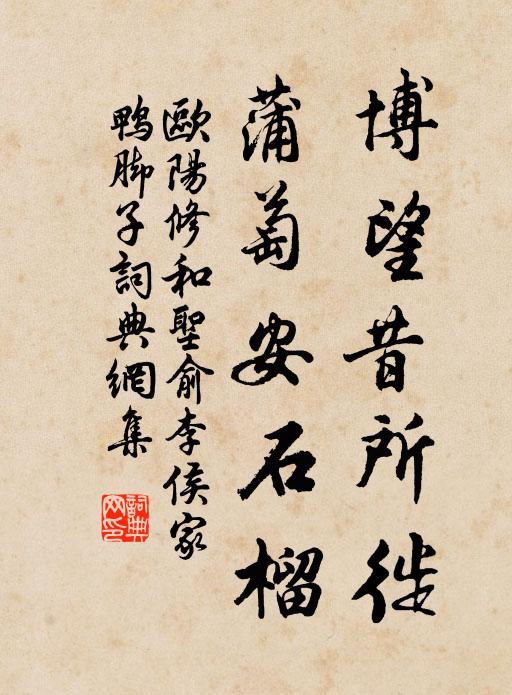 博望昔所徙
蒲萄安石榴
歐陽修和聖俞李侯家
鴨脚子詞典網集
詞典網印